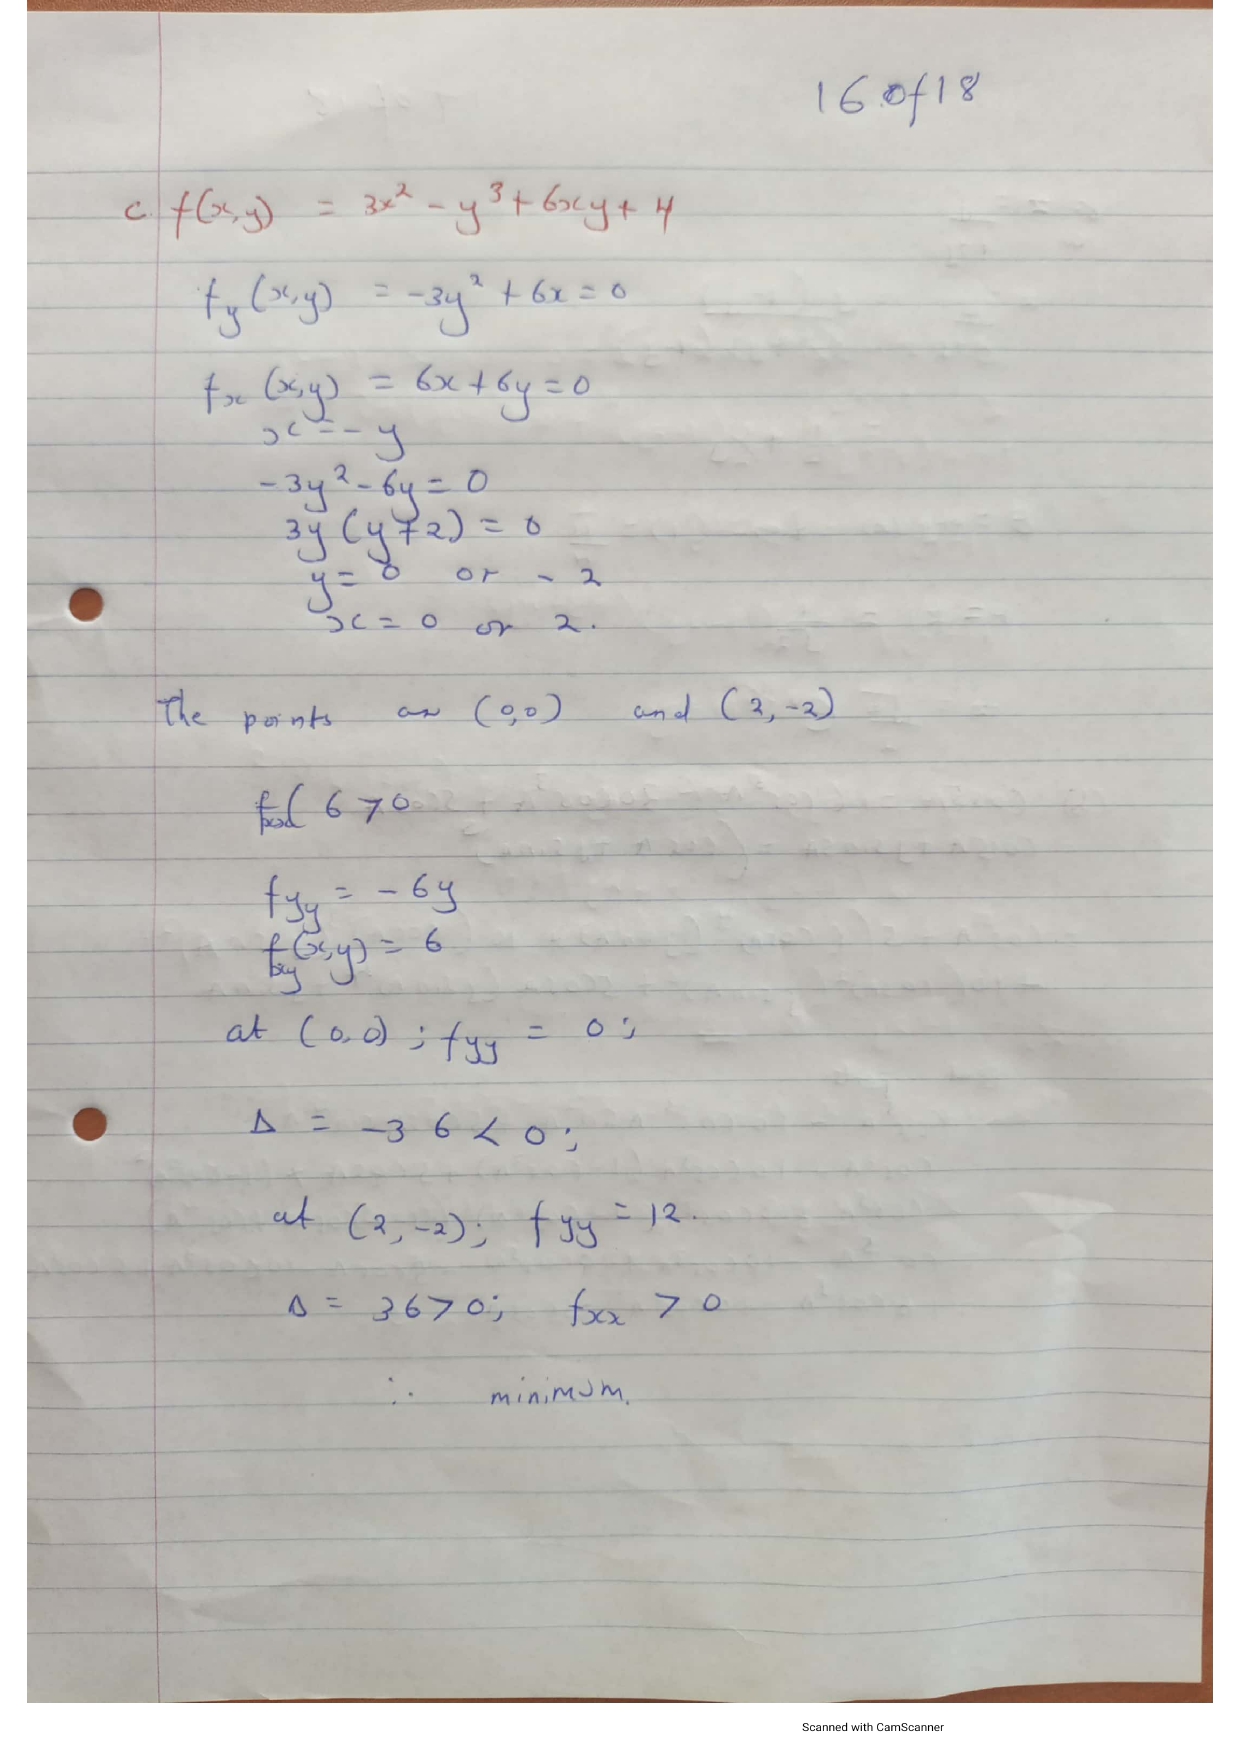 16 of 18
c. f(x,y) = 3x² - y³ + 6xy + 4
f_y(x,y) = -3y² + 6x = 0
f_x(x,y) = 6x + 6y = 0
x = - y
-3y² - 6y = 0
3y(y+2) = 0
y = 0 or - 2
x = 0 or 2.
The points are (0,0) and (2,-2)
6 > 0
f_yy = - 6y
f_xy(x,y) = 6
at (0,0) ; f_yy = 0 ;
Δ = -36 < 0 ;
at (2,-2); f_yy = 12.
Δ = 36 > 0; f_xx > 0
∴ minimum.
Scanned with CamScanner